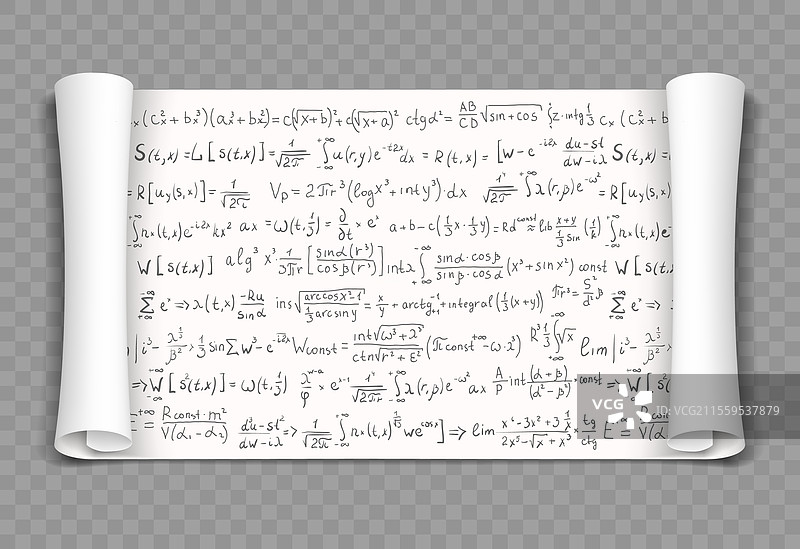 x (c²x + bx³)(ax³ + bx²) = c(√x+b)² + c(√x+a)² ctgα² = AB/CD √sin+cos ∫z·intg 1/3 cx (c²x + b
S(t,x) = L[s(t,x)] = 1/√2π ∫u(r,y)e^-tzx dx = R(t,x) = [W - e^-i2x du-st/dw-iλ S(t,x) =
= R[uy(s,x)] = 1/√2i Vp = 2πr³(logx³+inty³)·dx 1/√2π ∫λ(r,β)e^-ω² = R[uy(s,x
∫nx(t,x)e^-i2x kx² ax = ω(t,1/3) = ∂/∂t × e^x a+b-c(1/3 x·1/3 y) = Rd^const ≈ lib x+y/(1/3 sin) (1/k) ∫nx(t,x)e
W[s(t,x)] alg³ x³·1/3πr [sinα(r³)/cosβ(r³)] intλ ∫ sinα·cosβ/sinβ·cosα (x³+sinx²) const W[s(t,x
∑ e^x ⇒ λ(t,x) -Ru/sinα ins √(arccosx²-1)/(1/3 arcsiny) = x/y + arctg^-1 + integral(1/3(x+y)) πr³ = S²/d² β ∑ e^x ⇒
|i³ - 1/3 sin∑w³ - e^-i2x Wconst = int√ω³+λ³/ctn√r²+E² (πconst^+∞ -ω·x) R³ 1/3 ∫√x lim |i³ -
⇒ W[s²(t,x)] = ω(t,1/3) λ/φ × e^x-1 ∫λ(r,β)e^-ω² ax A/P int (α+β)/(α²-β) const ⇒ W[s²(t,x
E = Rconst·m²/V(α₁-α₂) du-st²/dw-iλ ⇒ 1/√2π ∫nx(t,x) we^cosx] ⇒ lim tg/ctg E
VCG
VCG211559537879